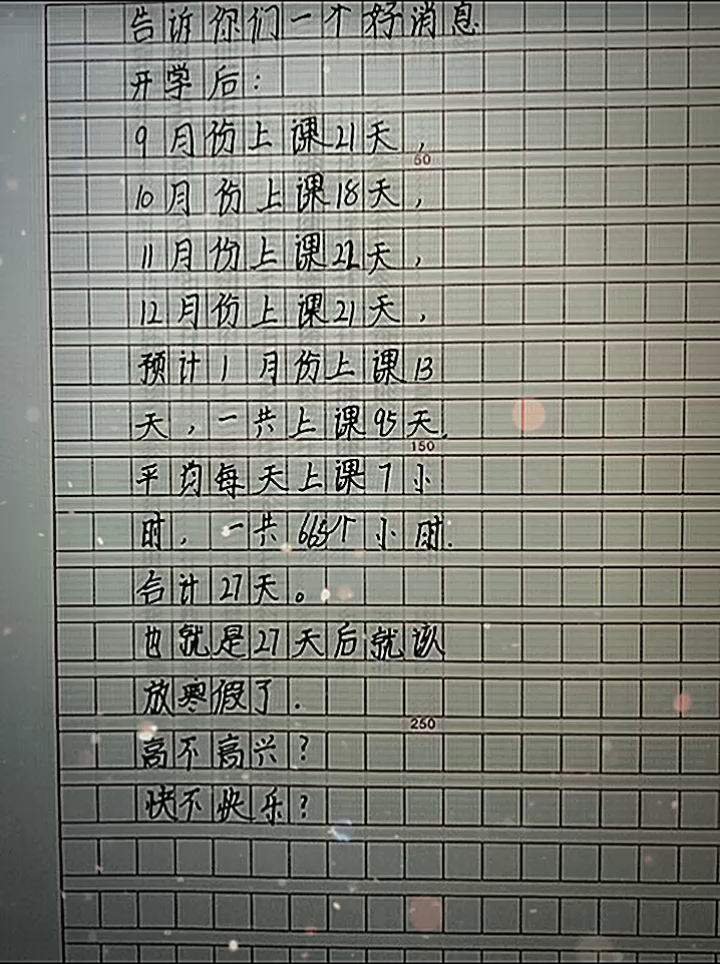 告诉你们一个好消息
开学后：
9月份上课21天，
60
10月份上课18天，
11月份上课22天，
12月份上课21天，
预计1月份上课13
天，一共上课95天.
150
平均每天上课7小
时，一共665个小时.
合计27天。
也就是27天后就该
放寒假了.
250
高不高兴？
快不快乐？